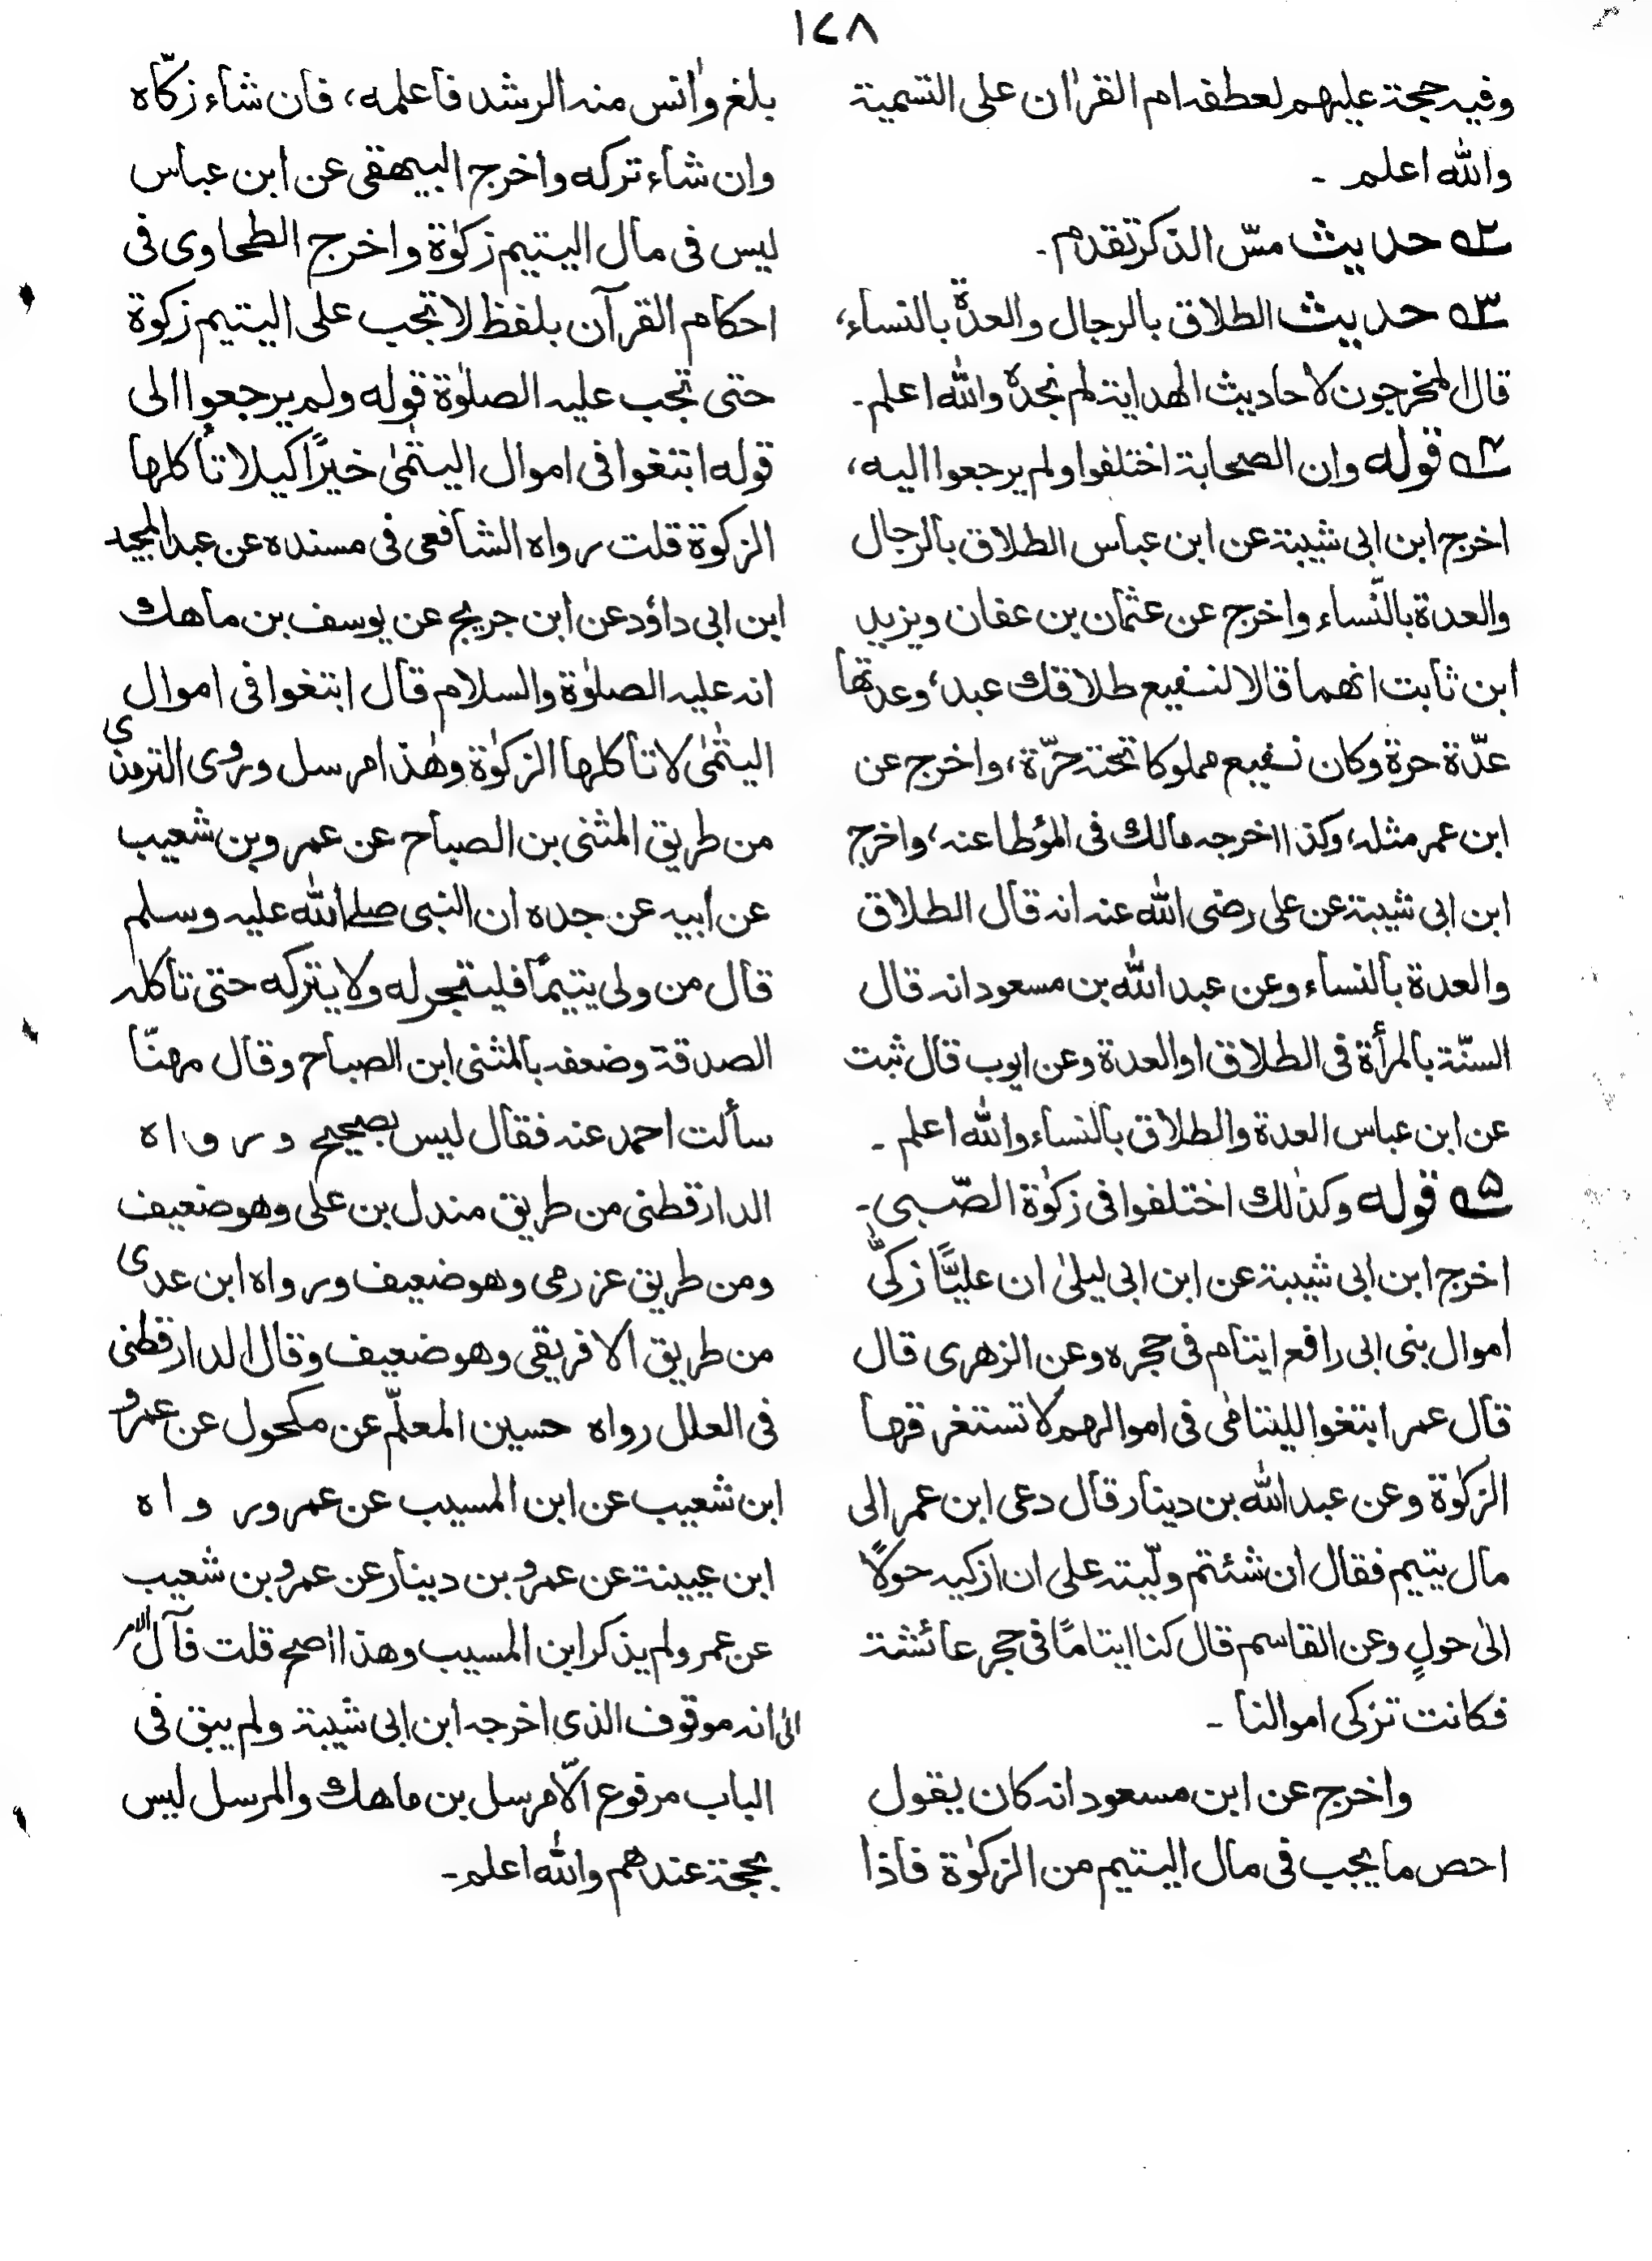 ١٤٨
وفيه حجة عليهم لعطفه ام القرآن على التسمية
والله اعلم ۔
٢؎ حديث مسّ الذكر تقدم ۔
٣؎ حديث الطلاق بالرجال والعدة بالنساء،
قال المخرجون لاحاديث الهداية لم نجده والله اعلم ۔
٤؎ قوله وان الصحابة اختلفوا ولم يرجعوا اليه،
اخرج ابن ابى شيبة عن ابن عباس الطلاق بالرجال
والعدة بالنّساء واخرج عن عثمان بن عفان ويزيد
ابن ثابت انهما قالا لنفيع طلاقك عبد، وعدتها
عدّة حرة وكان نفيع مملوكا تحته حرّة، واخرج عن
ابن عمر مثله، وكذا اخرجه مالك فى المؤطا عنه، واخرج
ابن ابى شيبة عن على رضى الله عنه انه قال الطلاق
والعدة بالنساء وعن عبد الله بن مسعود انه قال
السنّة بالمرأة فى الطلاق او العدة وعن ايوب قال ثبت
عن ابن عباس العدة والطلاق بالنساء والله اعلم ۔
٥؎ قوله وكذٰلك اختلفوا فى زكوٰة الصّبى ۔
اخرج ابن ابى شيبة عن ابن ابى ليلىٰ ان عليًّا زكّىٰ
اموال بنى ابى رافع ايتام فى حجره وعن الزهرى قال
قال عمر ابتغوا لليتامٰى فى اموالهم لا تستغرقها
الزكوٰة وعن عبد الله بن دينار قال دعى ابن عمر الى
مال يتيم فقال ان شئتم ولّيته على ان ازكيه حولًا
الىٰ حولٍ وعن القاسم قال كنا ايتامًا فى حجر عائشة
فكانت تزكى اموالنا ۔
واخرج عن ابن مسعود انه كان يقول
احص ما يجب فى مال اليتيم من الزكوٰة فاذا
بلغ وٰانس منه الرشد فاعلمه، فان شاء زكّاه
وان شاء تركه واخرج البيهقى عن ابن عباس
ليس فى مال اليتيم زكوٰة واخرج الطحاوى فى
احكام القرآن بلفظ لا تجب على اليتيم زكوة
حتى تجب عليه الصلوٰة قوله ولم يرجعوا الى
قوله ابتغوا فى اموال اليتٰمٰى خيرًا كيلا تأكلها
الزكوة قلت رواه الشافعى فى مسنده عن عبد المجيد
ابن ابى داؤد عن ابن جريج عن يوسف بن ماهك
انه عليه الصلوٰة والسلام قال ابتغوا فى اموال
اليتٰمٰى لا تأكلها الزكوٰة وهٰذا مرسل وروى الترمذى
من طريق المثنى بن الصباح عن عمرو بن شعيب
عن ابيه عن جده ان النبى صلے الله عليه وسلم
قال من ولى يتيمًا فليتجر له ولا يتركه حتى تأكله
الصدقة وضعفه بالمثنى ابن الصباح وقال مهنّا
سألت احمد عنه فقال ليس بصحيح ورواه
الدارقطنى من طريق مندل بن على وهو ضعيف
ومن طريق عزرمى وهو ضعيف ورواه ابن عدى
من طريق الافريقى وهو ضعيف وقال الدارقطنى
فى العلل رواه حسين المعلّم عن مكحول عن عمرو
ابن شعيب عن ابن المسيب عن عمر ورواه
ابن عيينة عن عمرو بن دينار عن عمرو بن شعيب
عن عمر ولم يذكر ابن المسيب وهذا اصح قلت فآل الامر
الىٰ انه موقوف الذى اخرجه ابن ابى شيبة ولم يبق فى
الباب مرفوع الّا مرسل بن ماهك والمرسل ليس
بحجة عندهم والله اعلم ۔